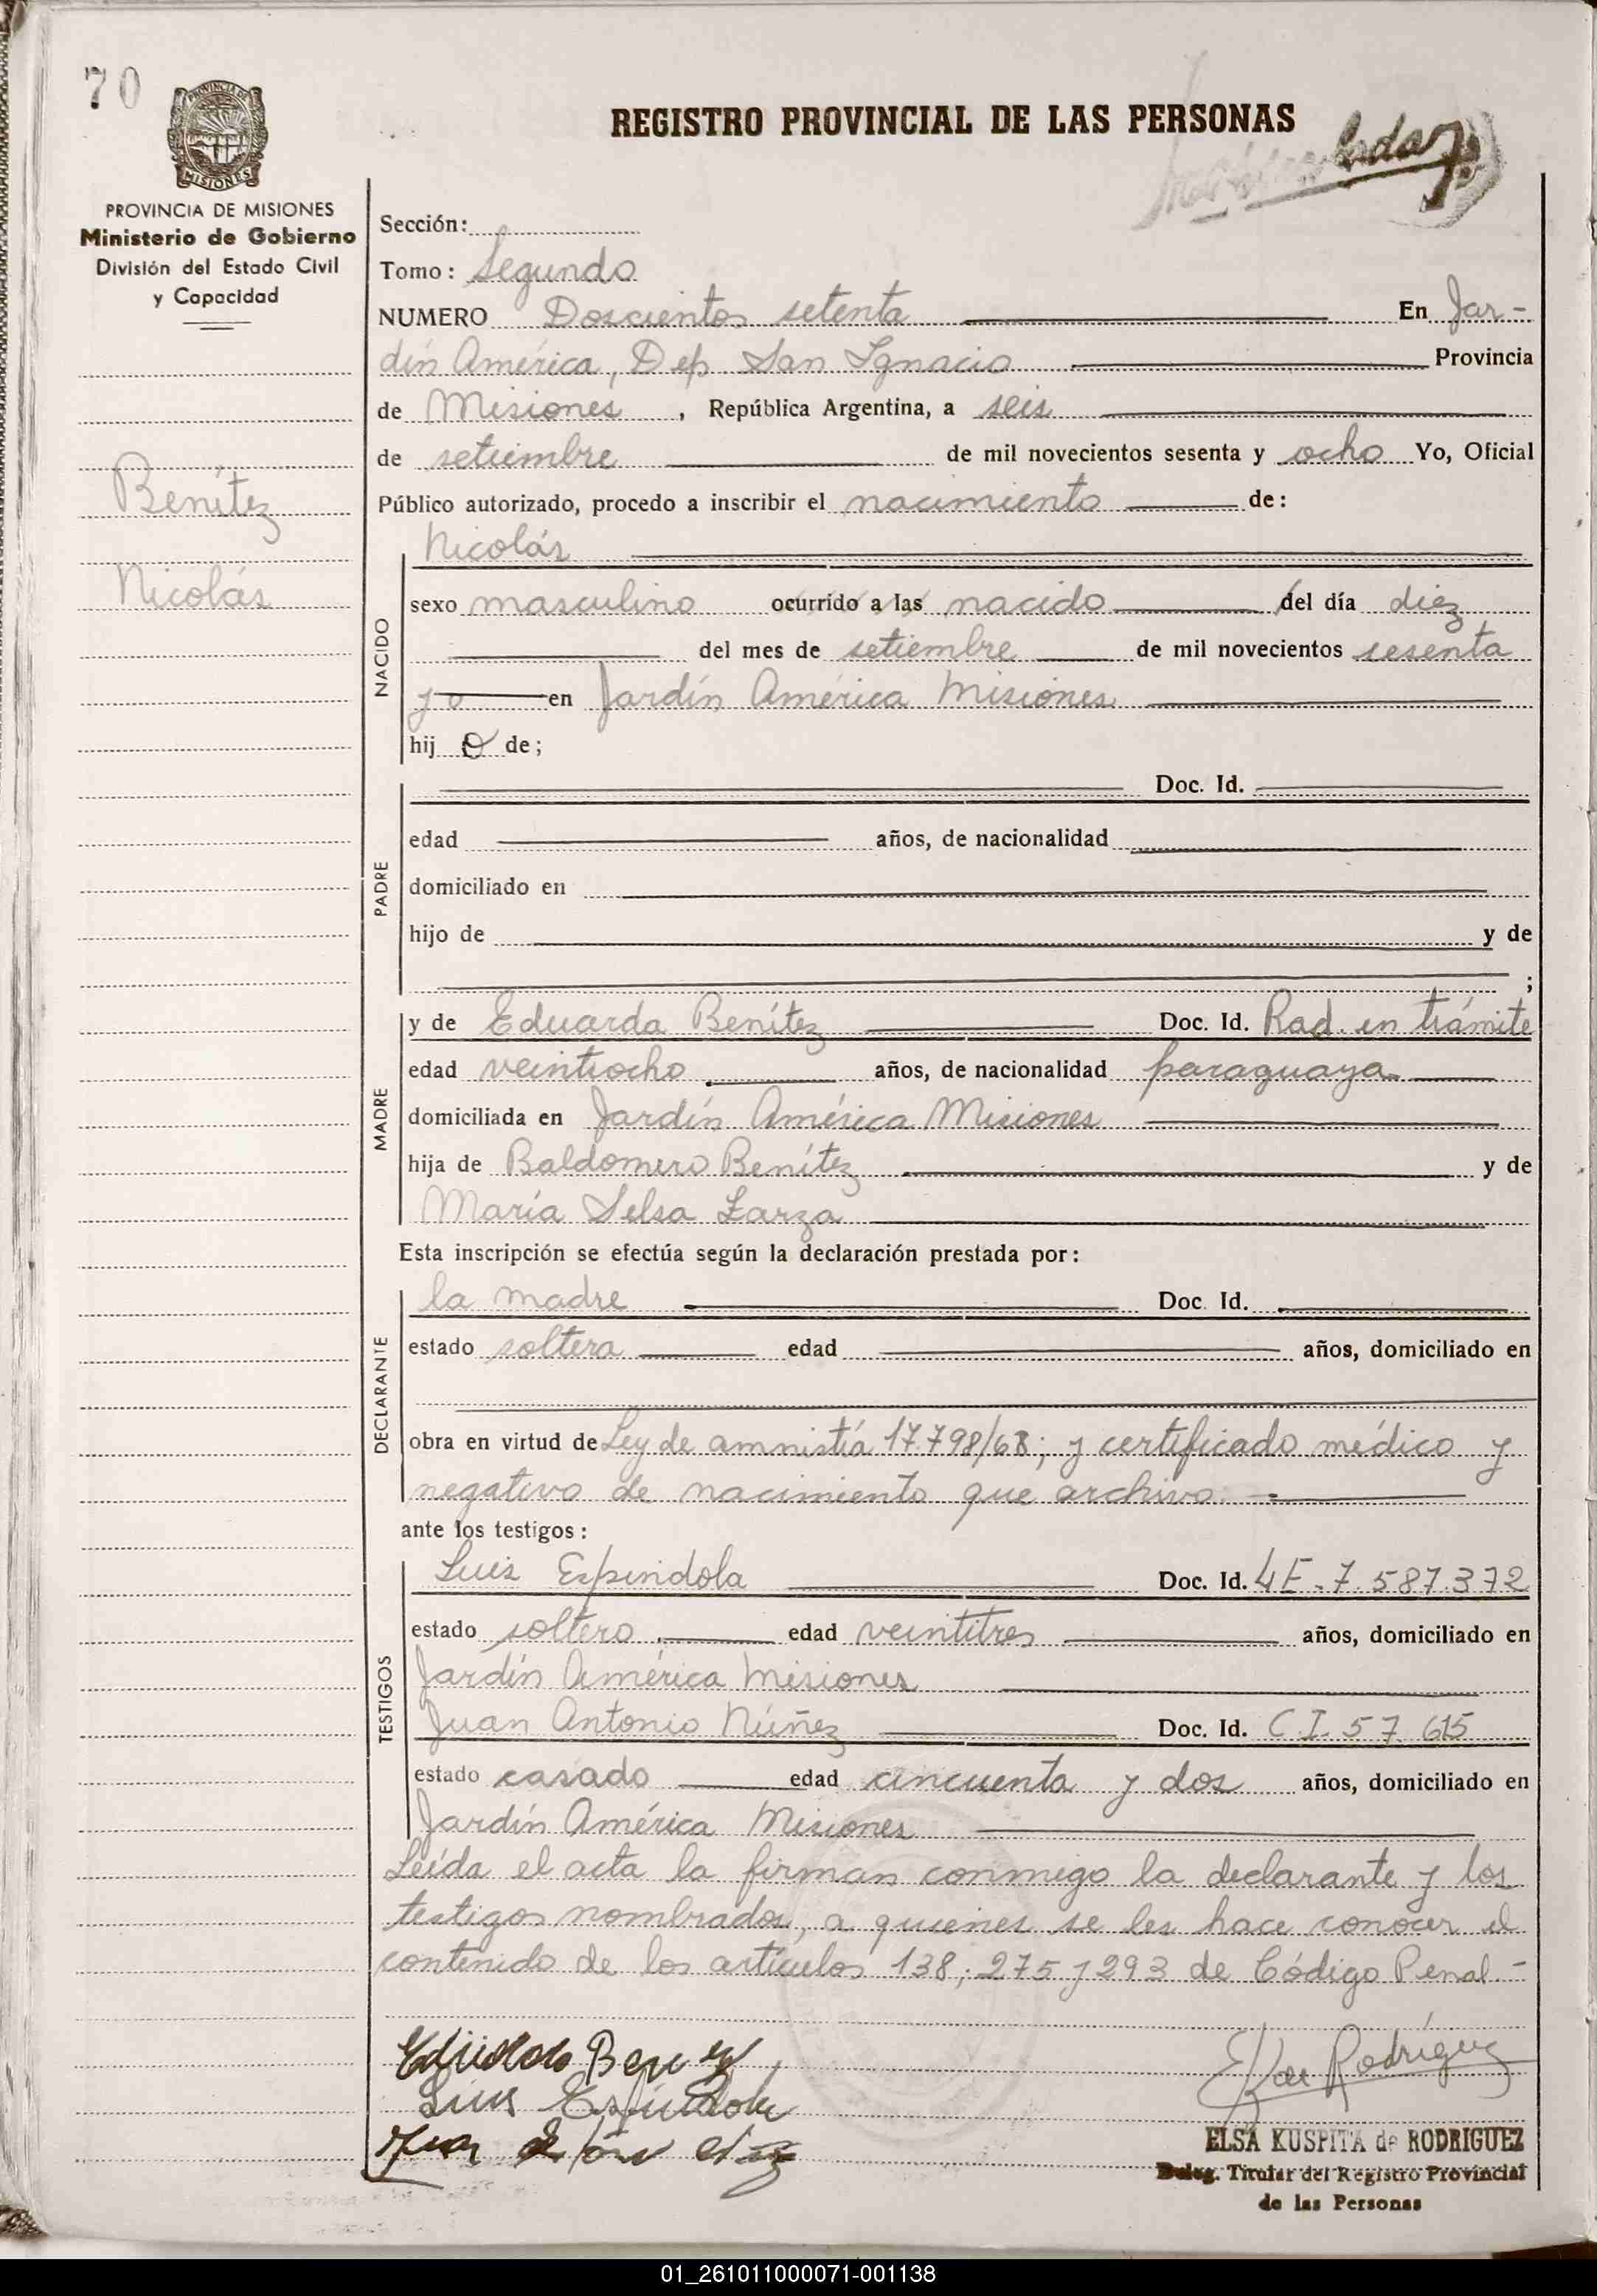 70
PROVINCIA DE
MISIONES
REGISTRO PROVINCIAL DE LAS PERSONAS
PROVINCIA DE MISIONES
Ministerio de Gobierno
División del Estado Civil
y Capacidad
Benítez
Nicolás
Sección:
Tomo: Segundo
NUMERO Doscientos setenta En Jar-
dín América, Dep San Ignacio Provincia
de Misiones, República Argentina, a seis
de setiembre de mil novecientos sesenta y ocho Yo, Oficial
Público autorizado, procedo a inscribir el nacimiento de:
Nicolás
NACIDO
sexo masculino ocurrido a las nacido del día diez
del mes de setiembre de mil novecientos sesenta
en Jardín América Misiones
hij o de;
PADRE
Doc. Id.
edad años, de nacionalidad
domiciliado en
hijo de y de
;
MADRE
y de Eduarda Benítez Doc. Id. Rad. en trámite
edad veintiocho años, de nacionalidad paraguaya
domiciliada en Jardín América Misiones
hija de Baldomero Benítez y de
María Selsa Larza
Esta inscripción se efectúa según la declaración prestada por:
DECLARANTE
la madre Doc. Id.
estado soltera edad años, domiciliado en
obra en virtud de Ley de amnistía 17.798/68; y certificado médico y
negativo de nacimiento que archivo.
ante los testigos:
TESTIGOS
Luis Espindola Doc. Id. 7.587.372
estado soltero edad veintitres años, domiciliado en
Jardín América Misiones
Juan Antonio Núñez Doc. Id. C.I. 57.615
estado casado edad cincuenta y dos años, domiciliado en
Jardín América Misiones
Leída el acta la firman conmigo la declarante y los
testigos nombrados, a quienes se les hace conocer el
contenido de los artículos 138; 275 y 293 de Código Penal.-
Luis Espindola
Rodríguez
ELSA KUSPITA de RODRIGUEZ
Deleg. Titular del Registro Provincial
de las Personas
01_261011000071-001138